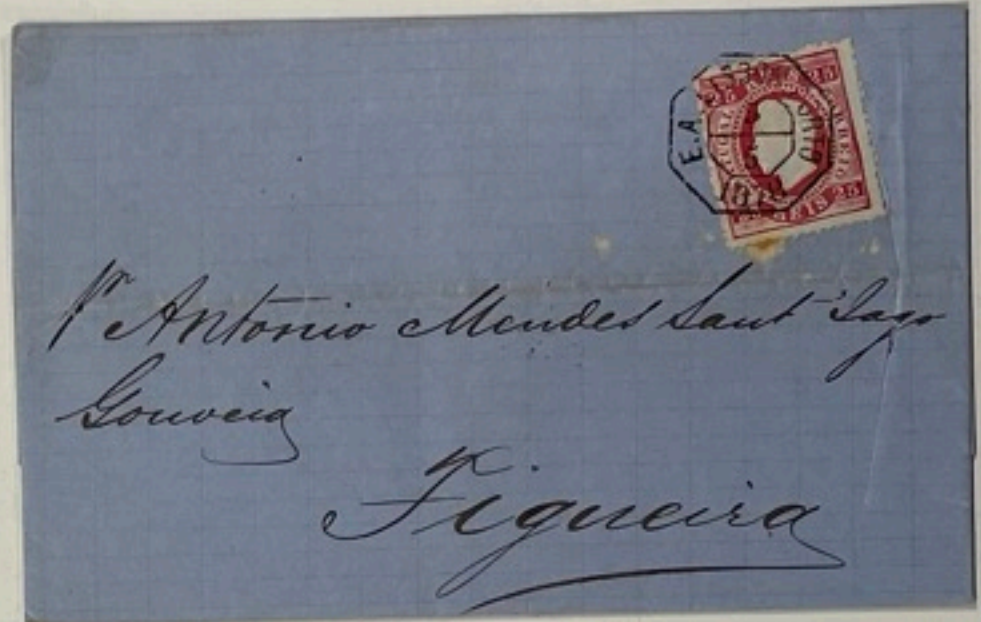 E.A. 1878
25 25
REIS 25
Antonio Mendes Sant Iago
Gouveia
Figueira